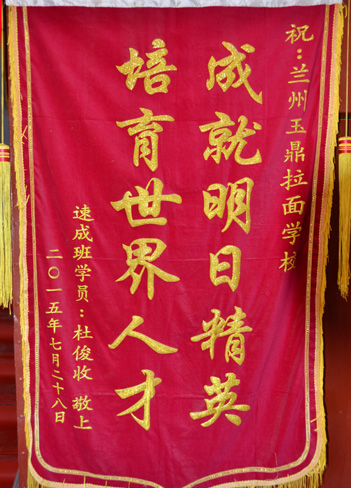 祝：兰州玉鼎拉面学校
成就明日精英
培育世界人才
速成班学员：杜俊收 敬上
二〇一五年七月二十八日